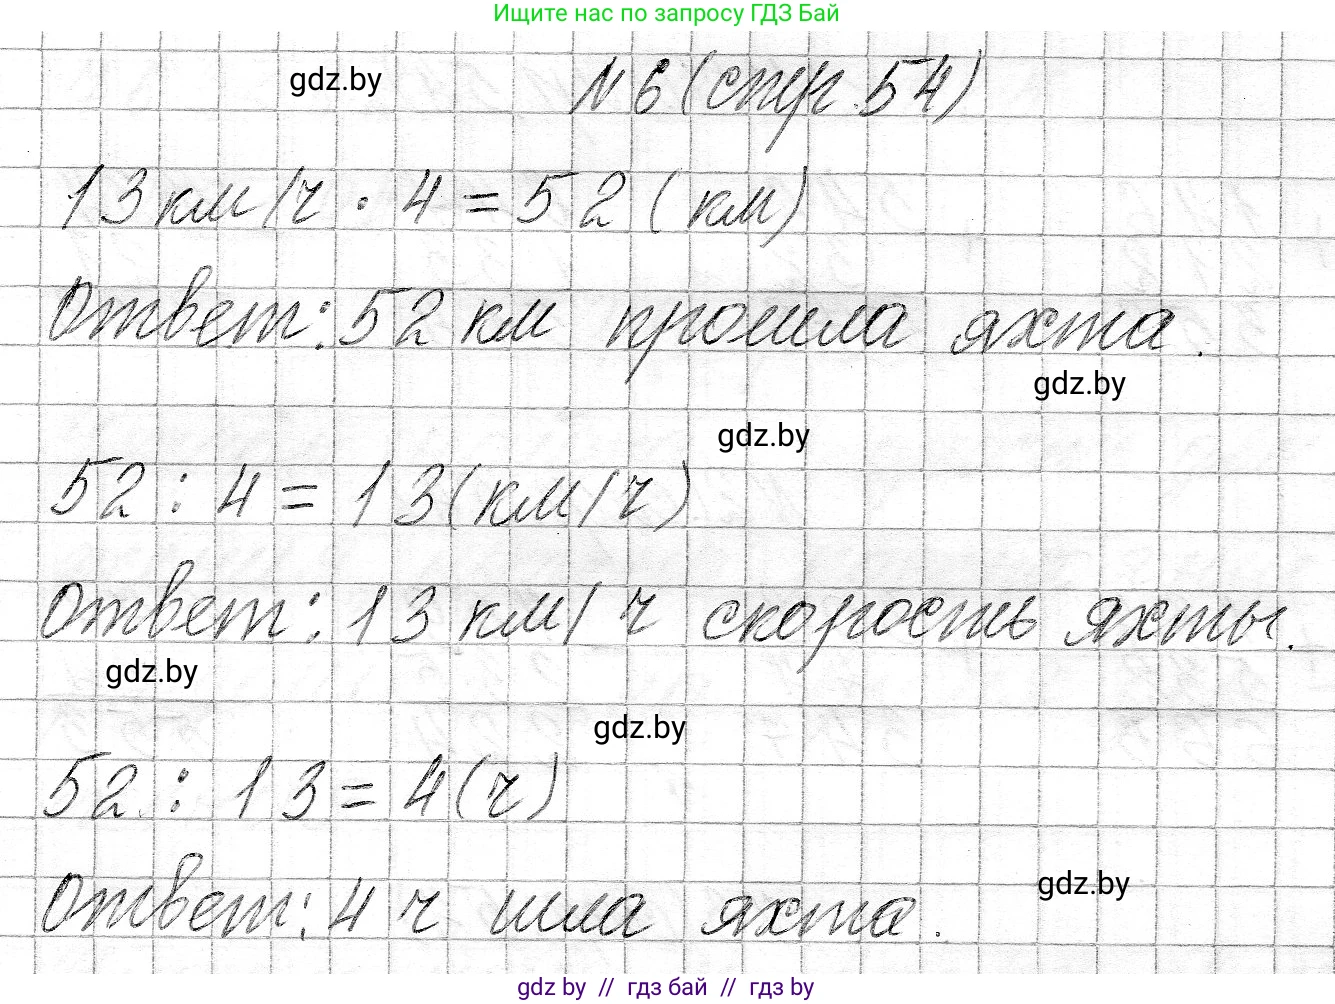 Ищите нас по запросу ГДЗ Бай
gdz.by
№ 6 (стр. 54)
13 км/ч · 4 = 52 (км)
Ответ: 52 км прошла яхта.
gdz.by
gdz.by
52 : 4 = 13 (км/ч)
Ответ: 13 км/ч скорость яхты.
gdz.by
gdz.by
52 : 13 = 4 (ч)
Ответ: 4 ч шла яхта.
gdz.by
gdz by // гдз бай // gdz by